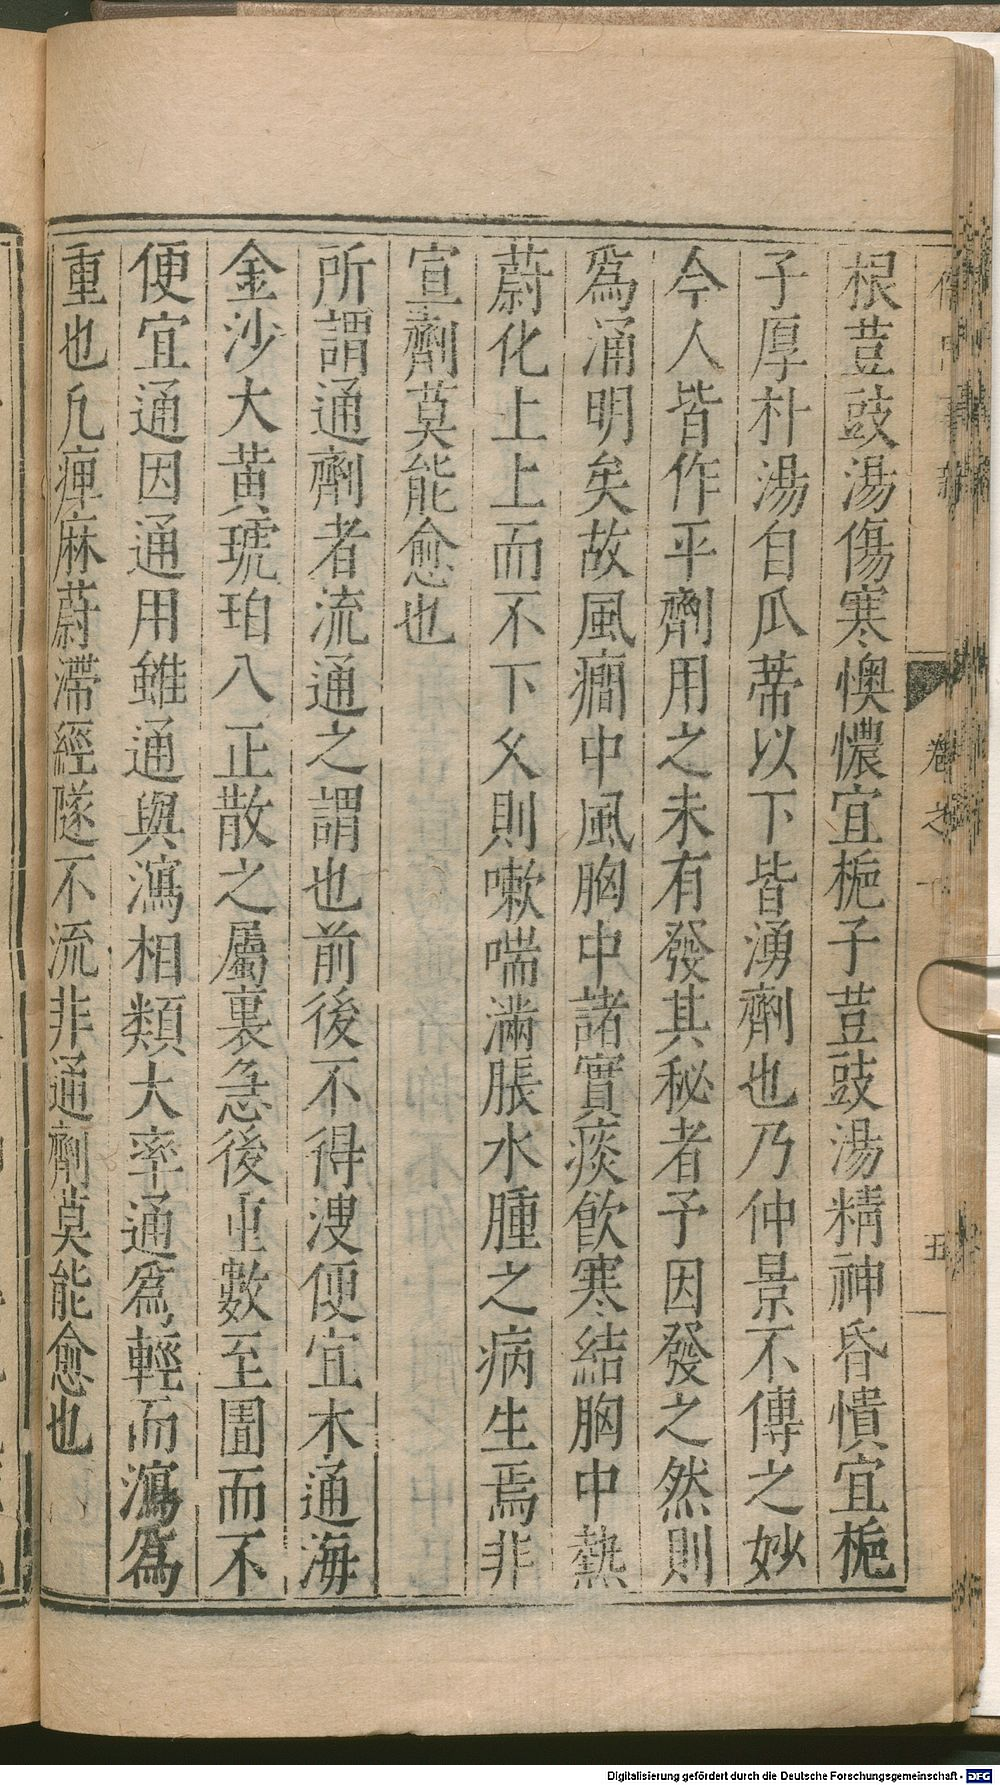 根荳豉湯傷寒懊憹宜梔子荳豉湯精神昏憒宜梔
子厚朴湯自瓜蒂以下皆湧劑也乃仲景不傳之妙
今人皆作平劑用之未有發其秘者予因發之然則
爲涌明矣故風癎中風胸中諸實痰飲寒結胸中熱
蔚化上上而不下久則嗽喘滿脹水腫之病生焉非
宣劑莫能愈也
所謂通劑者流通之謂也前後不得溲便宜木通海
金沙大黃琥珀八正散之屬裏急後重數至圊而不
便宜通因通用雖通與瀉相類大率通爲輕而瀉爲
重也凡痺麻蔚滯經隧不流非通劑莫能愈也
卷之
五
Digitalisierung gefördert durch die Deutsche Forschungsgemeinschaft - DFG